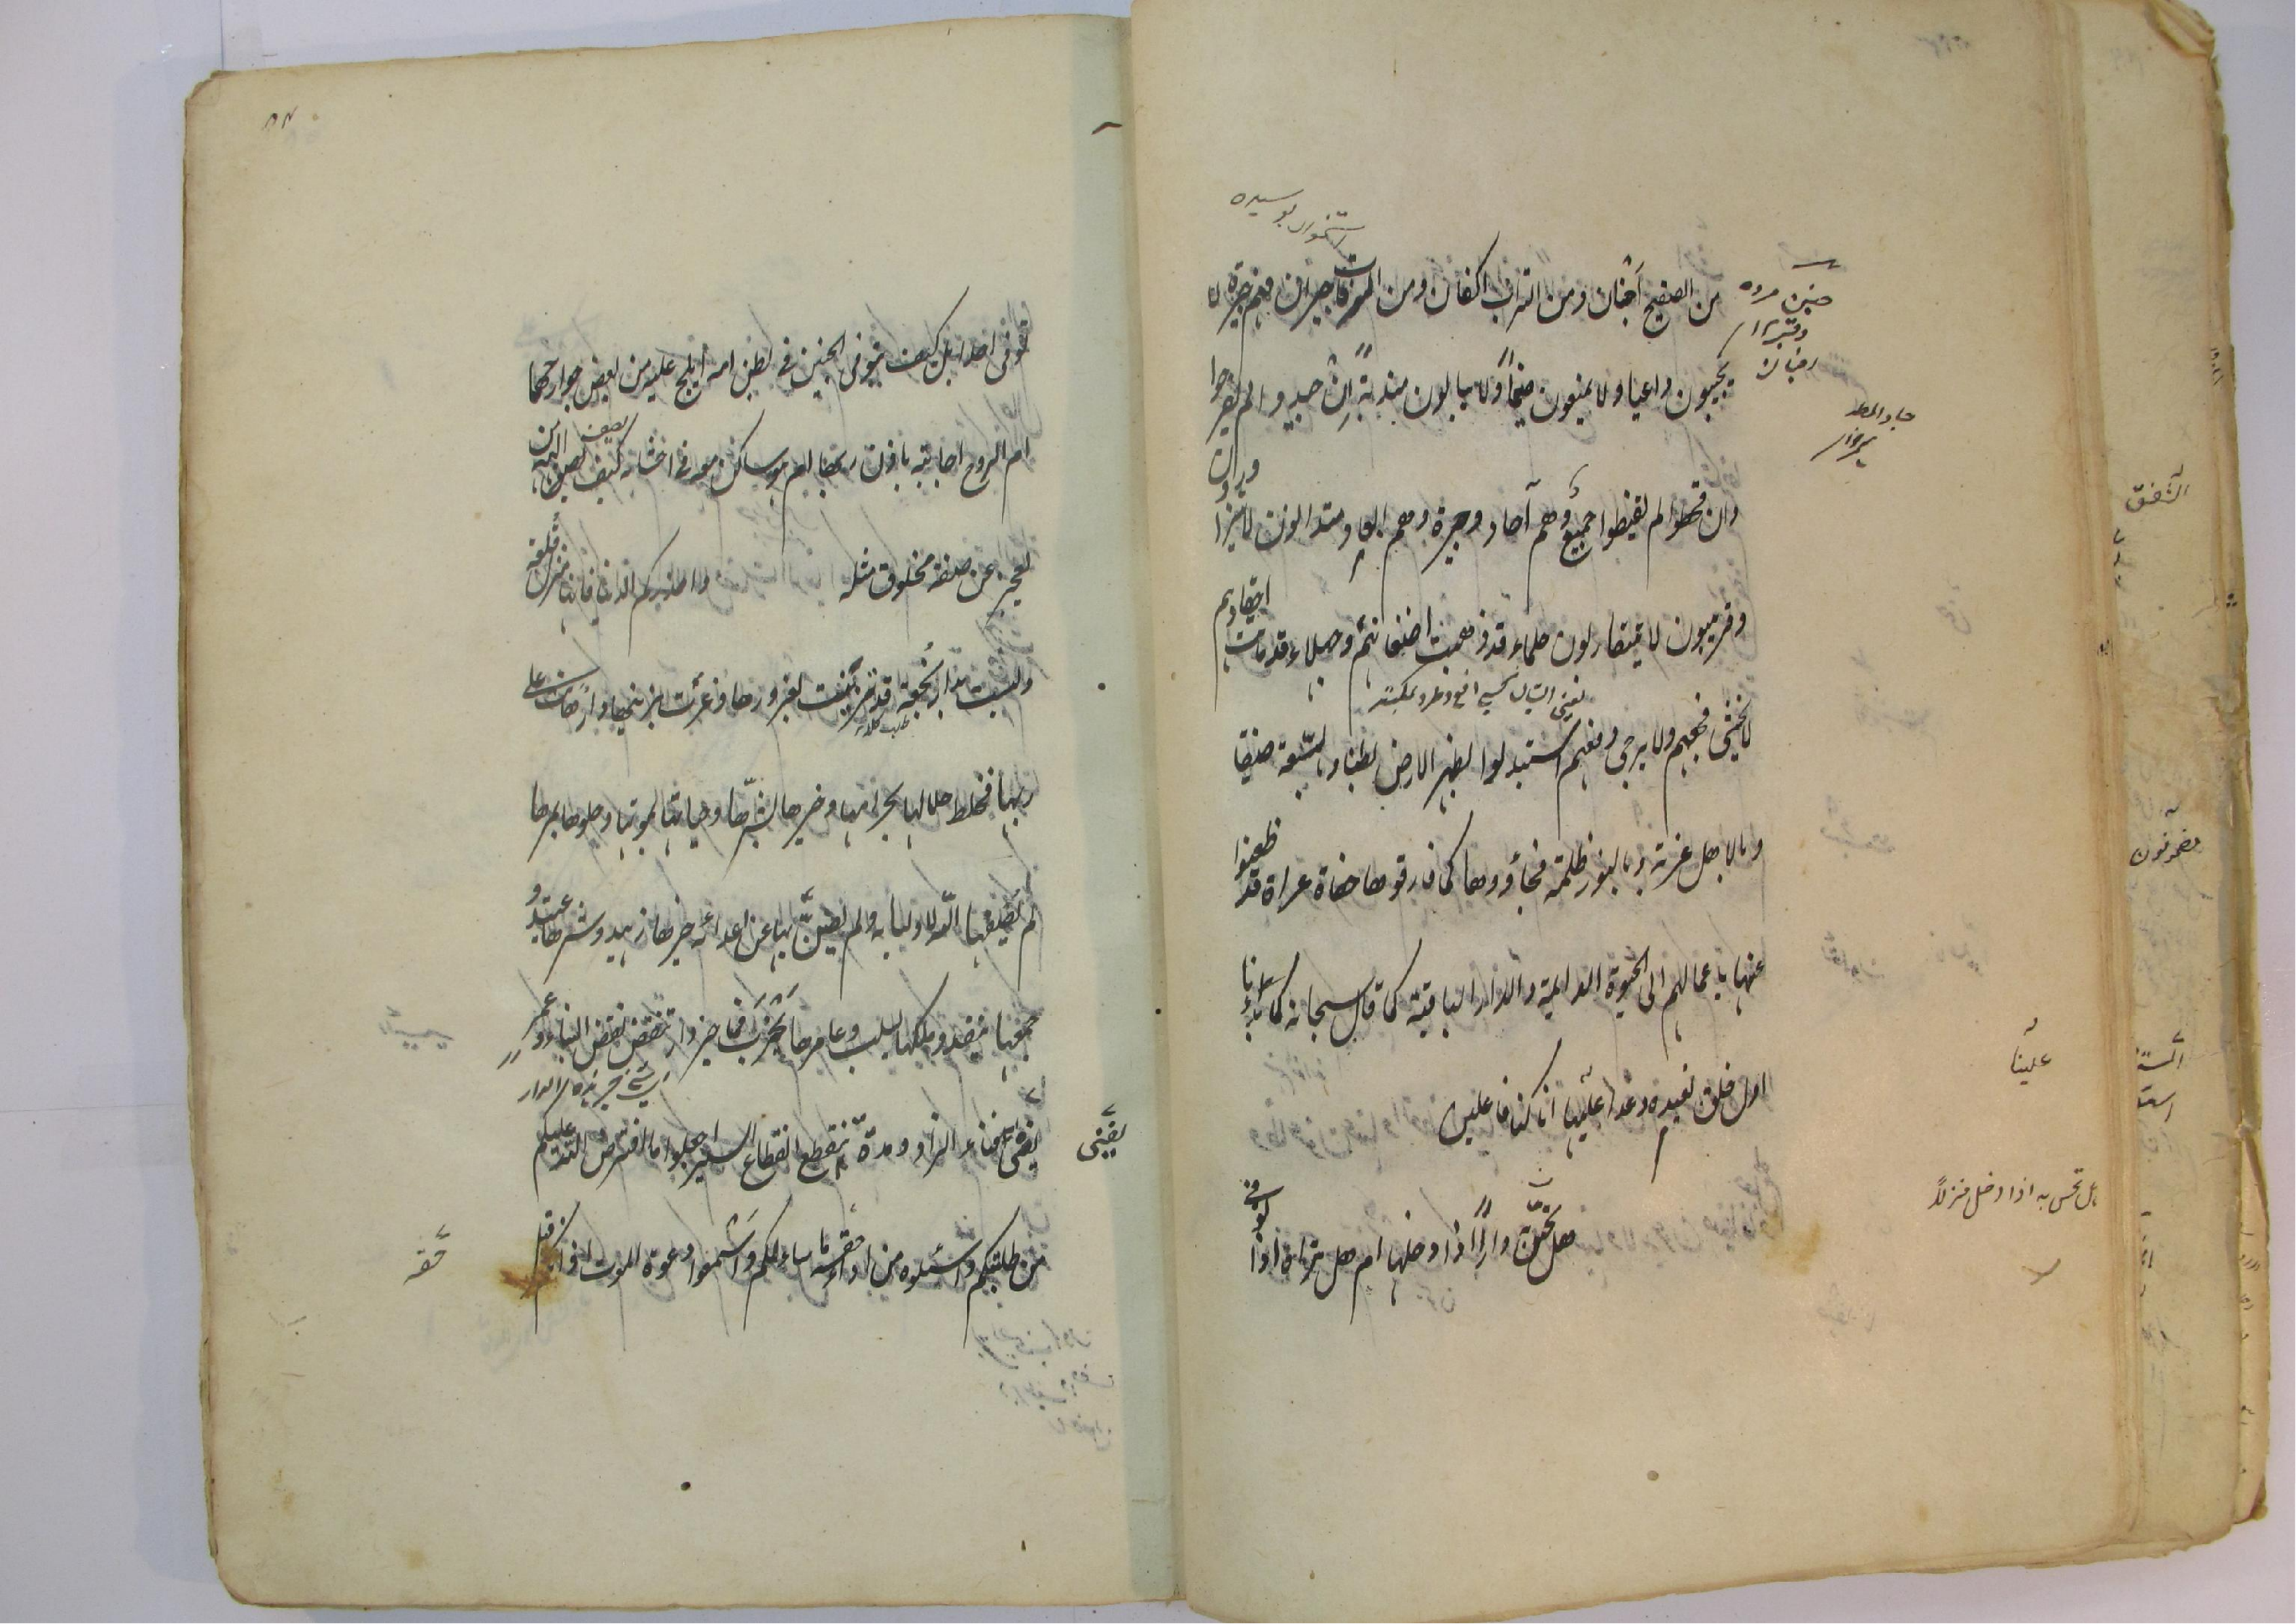 استخوان بوسیده
من الصفیح اجنان ومن التراب اکفان ومن الرفات جیران فهم جیرة لا
یجیبون داعیا ولا یمنعون ضیماً ولا یبالون مندبةً ان جیدوا لم یفرحوا
وان قحطوا لم یقنطوا جمیع وهم آحاد وجیرة وهم ابعاد متدانون لا یتزاورون
وقریبون لا یتقاربون حلماء قد ذهبت اضغانهم وجهلاء قد ماتت احقادهم
لا یخشی فجعهم ولا یرجی دفعهم استبدلوا بظهر الارض بطنا وبالسّعة ضیقا
وبالاهل غربة وبالنور ظلمة فجاؤوها کما فارقوها حفاة عراة قد ظعنوا
عنها باعمالهم الی الحیوة الدایمة والدار الباقیة کما قال سبحانه کما بدأنا
اول خلق نعیده وعدا علینا انا کنا فاعلین
علینا
هل تحس به اذا دخل منزلاً
هل تحسّ داراً اذا دخلها ام هل تراه اذا
توفی احدا بل کیف یتوفی الجنین فی بطن امه أیلج علیه من بعض جوارحها
ام الروح اجابته باذن ربها ام هو ساکن معه فی احشائها کیف یصف الهه من
یعجز عن صفة مخلوق مثله واحذرکم الدنیا فانها منزل قلعة
ولیست بدار نجعة قد تزینت بغرورها وغرت بزینتها دار هانت علی
ربها فخلط حلالها بحرامها وخیرها بشرّها وحیاتها بموتها وحلوها بمرها
لم یصفها الله لاولیائه ولم یضنّ بها عن اعدائه خیرها زهید وشرها عتید و
جمعها ینفد وملکها یسلب وعامرها یخرب فما خیر دار تنقض نقض البناء وعمر
یفنی فناء الزاد ومدة تنقطع انقطاع السیر اجعلوا ما افترض الله علیکم
یفنی
من طلبتکم واسئلوه من اداء حقه ما سالکم واسمعوا دعوة الموت اذانکم قبل
حقه